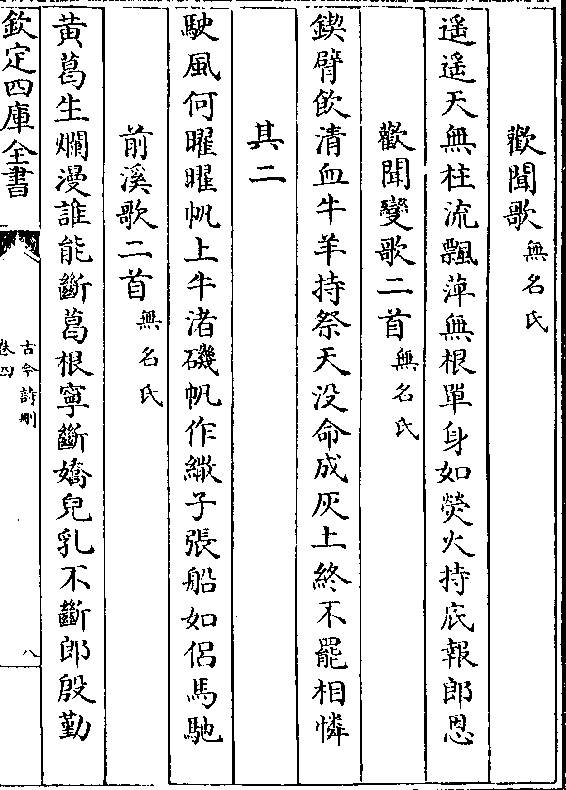 歡聞歌無名氏
遥遥天無柱流飄萍無根單身如熒火持底報郎恩
歡聞變歌二首無名氏
鍥臂飲清血牛羊持祭天没命成灰上終不罷相憐
其二
駛風何曜曜帆上牛渚磯帆作繖子張船如侣馬馳
前溪歌二首無名氏
黄葛生爛漫誰能斷葛根寧斷嬌兒乳不斷郎殷勤
欽定四庫全書
古今詩刪
卷四
八